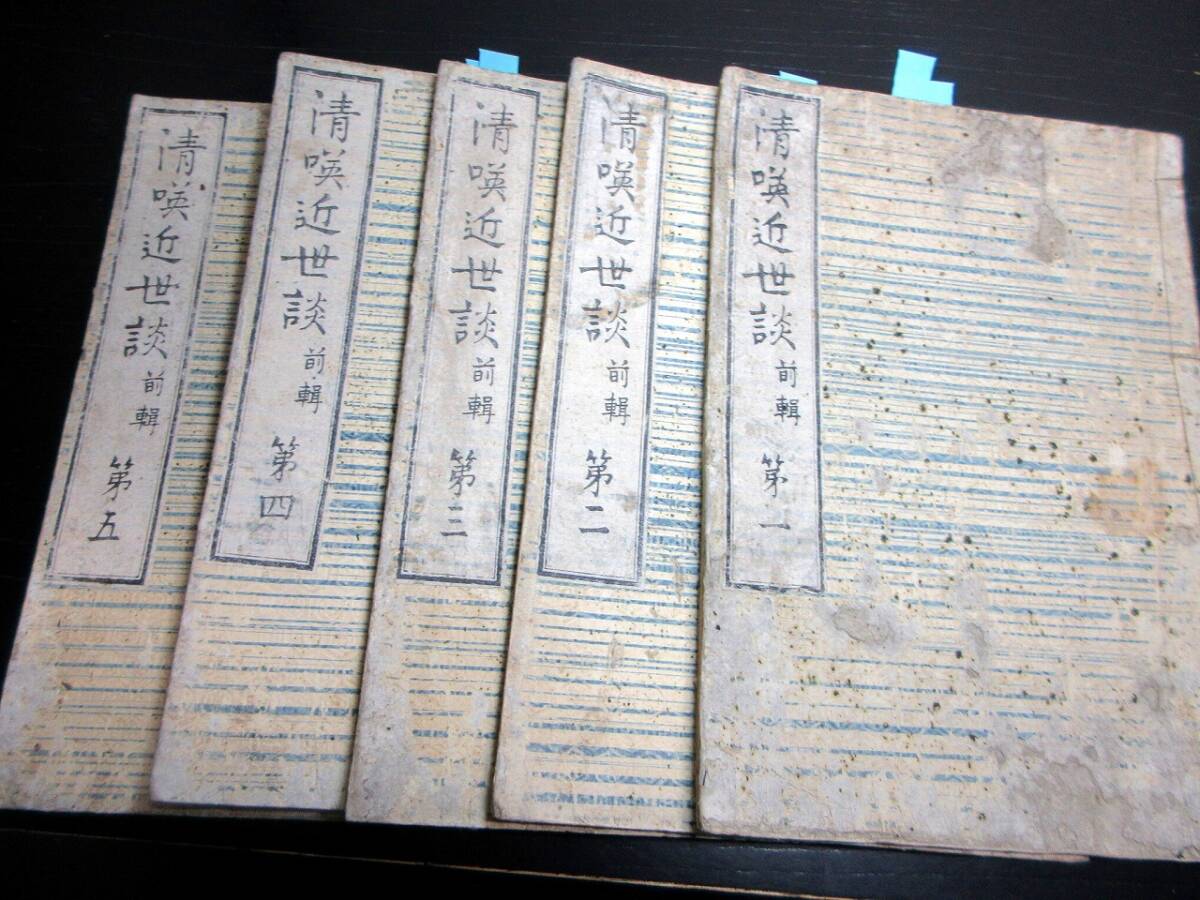 清𠸄近世談 前輯 第一
清𠸄近世談 前輯 第二
清𠸄近世談 前輯 第三
清𠸄近世談 前輯 第四
清𠸄近世談 前輯 第五